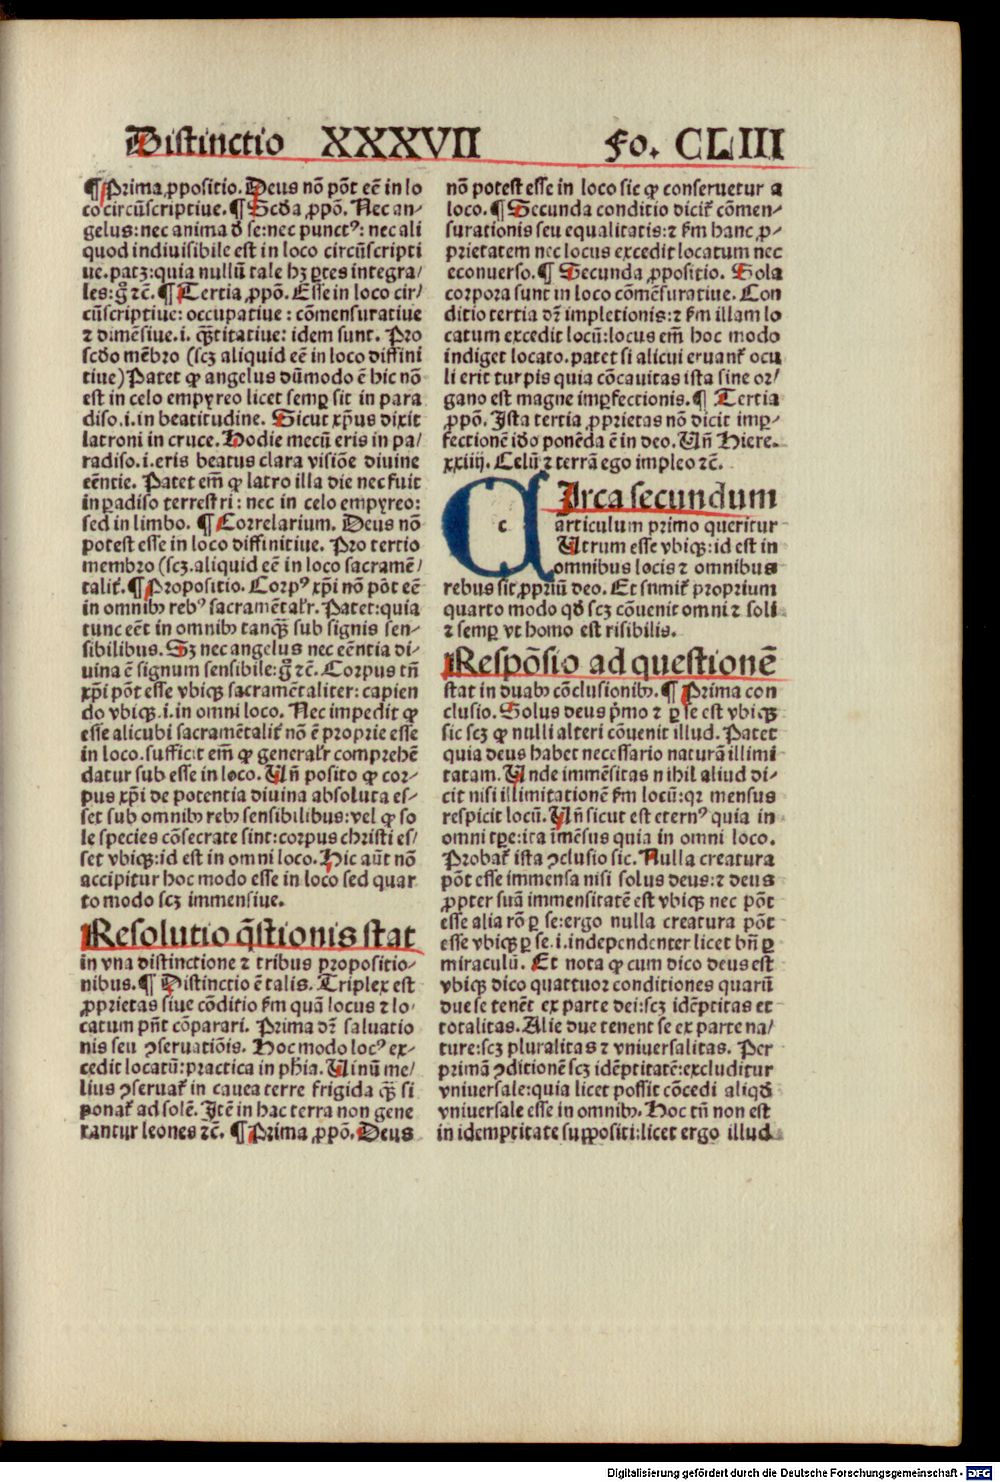 Distinctio XXXVII Fo. CLIII
¶ Prima ꝓpositio. Deus nõ põt eẽ in lo
co circũscriptiue. ¶ Scđa ꝓpõ. Nec an⸗
gelus: nec anima ꝺ se: nec punctꝰ: nec ali
quod indiuisibile est in loco circũscripti
ue. patꝫ: quia nullũ tale hꝫ ꝑtes integra⸗
les: g̊ ⁊c̃. ¶ Tertia ꝓpõ. Esse in loco cir⸗
cũscriptiue: occupatiue: cõmensuratiue
⁊ dimẽsiue .i. q̃titatiue: idem sunt. Pro
scđo mẽbro (scꝫ aliquid eẽ in loco diffini
tiue) Patet ꝙ angelus dũmodo ẽ hic nõ
est in celo empyreo licet semꝑ sit in para
diso .i. in beatitudine. Sicut xp̃us dixit
latroni in cruce. Hodie mecũ eris in pa⸗
radiso .i. eris beatus clara visiõe diuine
eẽntie. Patet em̃ ꝙ latro illa die nec fuit
in ꝑadiso terrestri: nec in celo empyreo:
sed in limbo. ¶ Correlarium. Deus nõ
potest esse in loco diffinitiue. Pro tertio
membro (scꝫ. aliquid eẽ in loco sacramẽ⸗
talit̃. ¶ Propositio. Corpꝰ xp̃i nõ põt eẽ
in omnibꝫ rebꝰ sacramẽtaľr. Patet: quia
tunc eẽt in omnibꝫ tanq̃ sub signis sen⸗
sibilibus. Sꝫ nec angelus nec eẽntia di⸗
uina ẽ signum sensibile: g̊ ⁊c̃. Corpus tñ
xp̃i põt esse vbiqꝫ sacramẽtaliter: capien
do vbiqꝫ .i. in omni loco. Nec impedit ꝙ
esse alicubi sacramẽtalit̃ nõ ẽ proprie esse
in loco. sufficit em̃ ꝙ generaľr comprehẽ
datur sub esse in loco. Vñ posito ꝙ cor⸗
pus xp̃i de potentia diuina absoluta es⸗
set sub omnibꝫ rebꝫ sensibilibus: vel ꝙ so
le species cõsecrate sint: corpus christi es⸗
set vbiqꝫ: id est in omni loco. Hic aũt nõ
accipitur hoc modo esse in loco sed quar
to modo scꝫ immensiue.
Resolutio q̃stionis stat
in vna distinctione ⁊ tribus propositio⸗
nibus. ¶ Distinctio ẽ talis. Triplex est
ꝓprietas siue cõditio ẜm quã locus ⁊ lo⸗
catum pñt cõparari. Prima dr̃ saluatio
nis seu ꝯseruatiõis. Hoc modo locꝰ ex⸗
cedit locatũ: practica in ph̃ia. Vinũ me⸗
lius ꝯseruat̃ in cauea terre frigida q̃ si
ponat̃ ad solẽ. Itẽ in hac terra non gene
rantur leones ⁊c̃. ¶ Prima ꝓpõ. Deus
nõ potest esse in loco sic ꝙ conseruetur a
loco. ¶ Secunda conditio dicit̃ cõmen⸗
surationis seu equalitatis: ⁊ ẜm hanc ꝓ⸗
prietatem nec locus excedit locatum nec
econuerso. ¶ Secunda ꝓpositio. Sola
corpora sunt in loco cõmẽsuratiue. Con
ditio tertia dr̃ impletionis: ⁊ ẜm illam lo
catum excedit locũ: locus em̃ hoc modo
indiget locato. patet si alicui eruant̃ ocu
li erit turpis quia cõcauitas ista sine or⸗
gano est magne imꝑfectionis. ¶ Tertia
ꝓpõ. Ista tertia ꝓprietas nõ dicit imꝑ⸗
fectionẽ iđo ponẽda ẽ in deo. Vñ Hiere.
xxiiij. Celũ ⁊ terrã ego impleo ⁊c̃.
CIrca secundum
articulum primo queritur
Vtrum esse vbiqꝫ: id est in
omnibus locis ⁊ omnibus
rebus sit ꝓpriũ deo. Et sumit̃ proprium
quarto modo qđ scꝫ cõuenit omni ⁊ soli
⁊ semꝑ vt homo est risibilis.
Respõsio ad questionẽ
stat in duabꝫ cõclusionibꝫ. ¶ Prima con
clusio. Solus deus p̃mo ⁊ ꝑ se est vbiqꝫ
sic scꝫ ꝙ nulli alteri cõuenit illud. Patet
quia deus habet necessario naturã illimi
tatam. Vnde immẽsitas nihil aliud di⸗
cit nisi illimitationẽ ẜm locũ: qꝛ mensus
respicit locũ. Vñ sicut est eternꝰ quia in
omni tꝑe: ita imẽsus quia in omni loco.
Probat̃ ista ꝯclusio sic. Nulla creatura
põt esse immensa nisi solus deus: ⁊ deus
ꝓpter suã immensitatẽ est vbiqꝫ nec põt
esse alia rõ ꝑ se: ergo nulla creatura põt
esse vbiqꝫ ꝑ se .i. independenter licet bñ ꝑ
miraculũ. Et nota ꝙ cum dico deus est
vbiqꝫ dico quattuor conditiones quarũ
due se tenẽt ex parte dei: scꝫ idẽptitas et
totalitas. Alie due tenent se ex parte na⸗
ture: scꝫ pluralitas ⁊ vniuersalitas. Per
primã ꝯditionẽ scꝫ idẽptitatẽ: excluditur
vniuersale: quia licet possit cõcedi aliqđ
vniuersale esse in omnibꝫ. Hoc tñ non est
in idemptitate suppositi: licet ergo illud
Digitalisierung gefördert durch die Deutsche Forschungsgemeinschaft - DFG